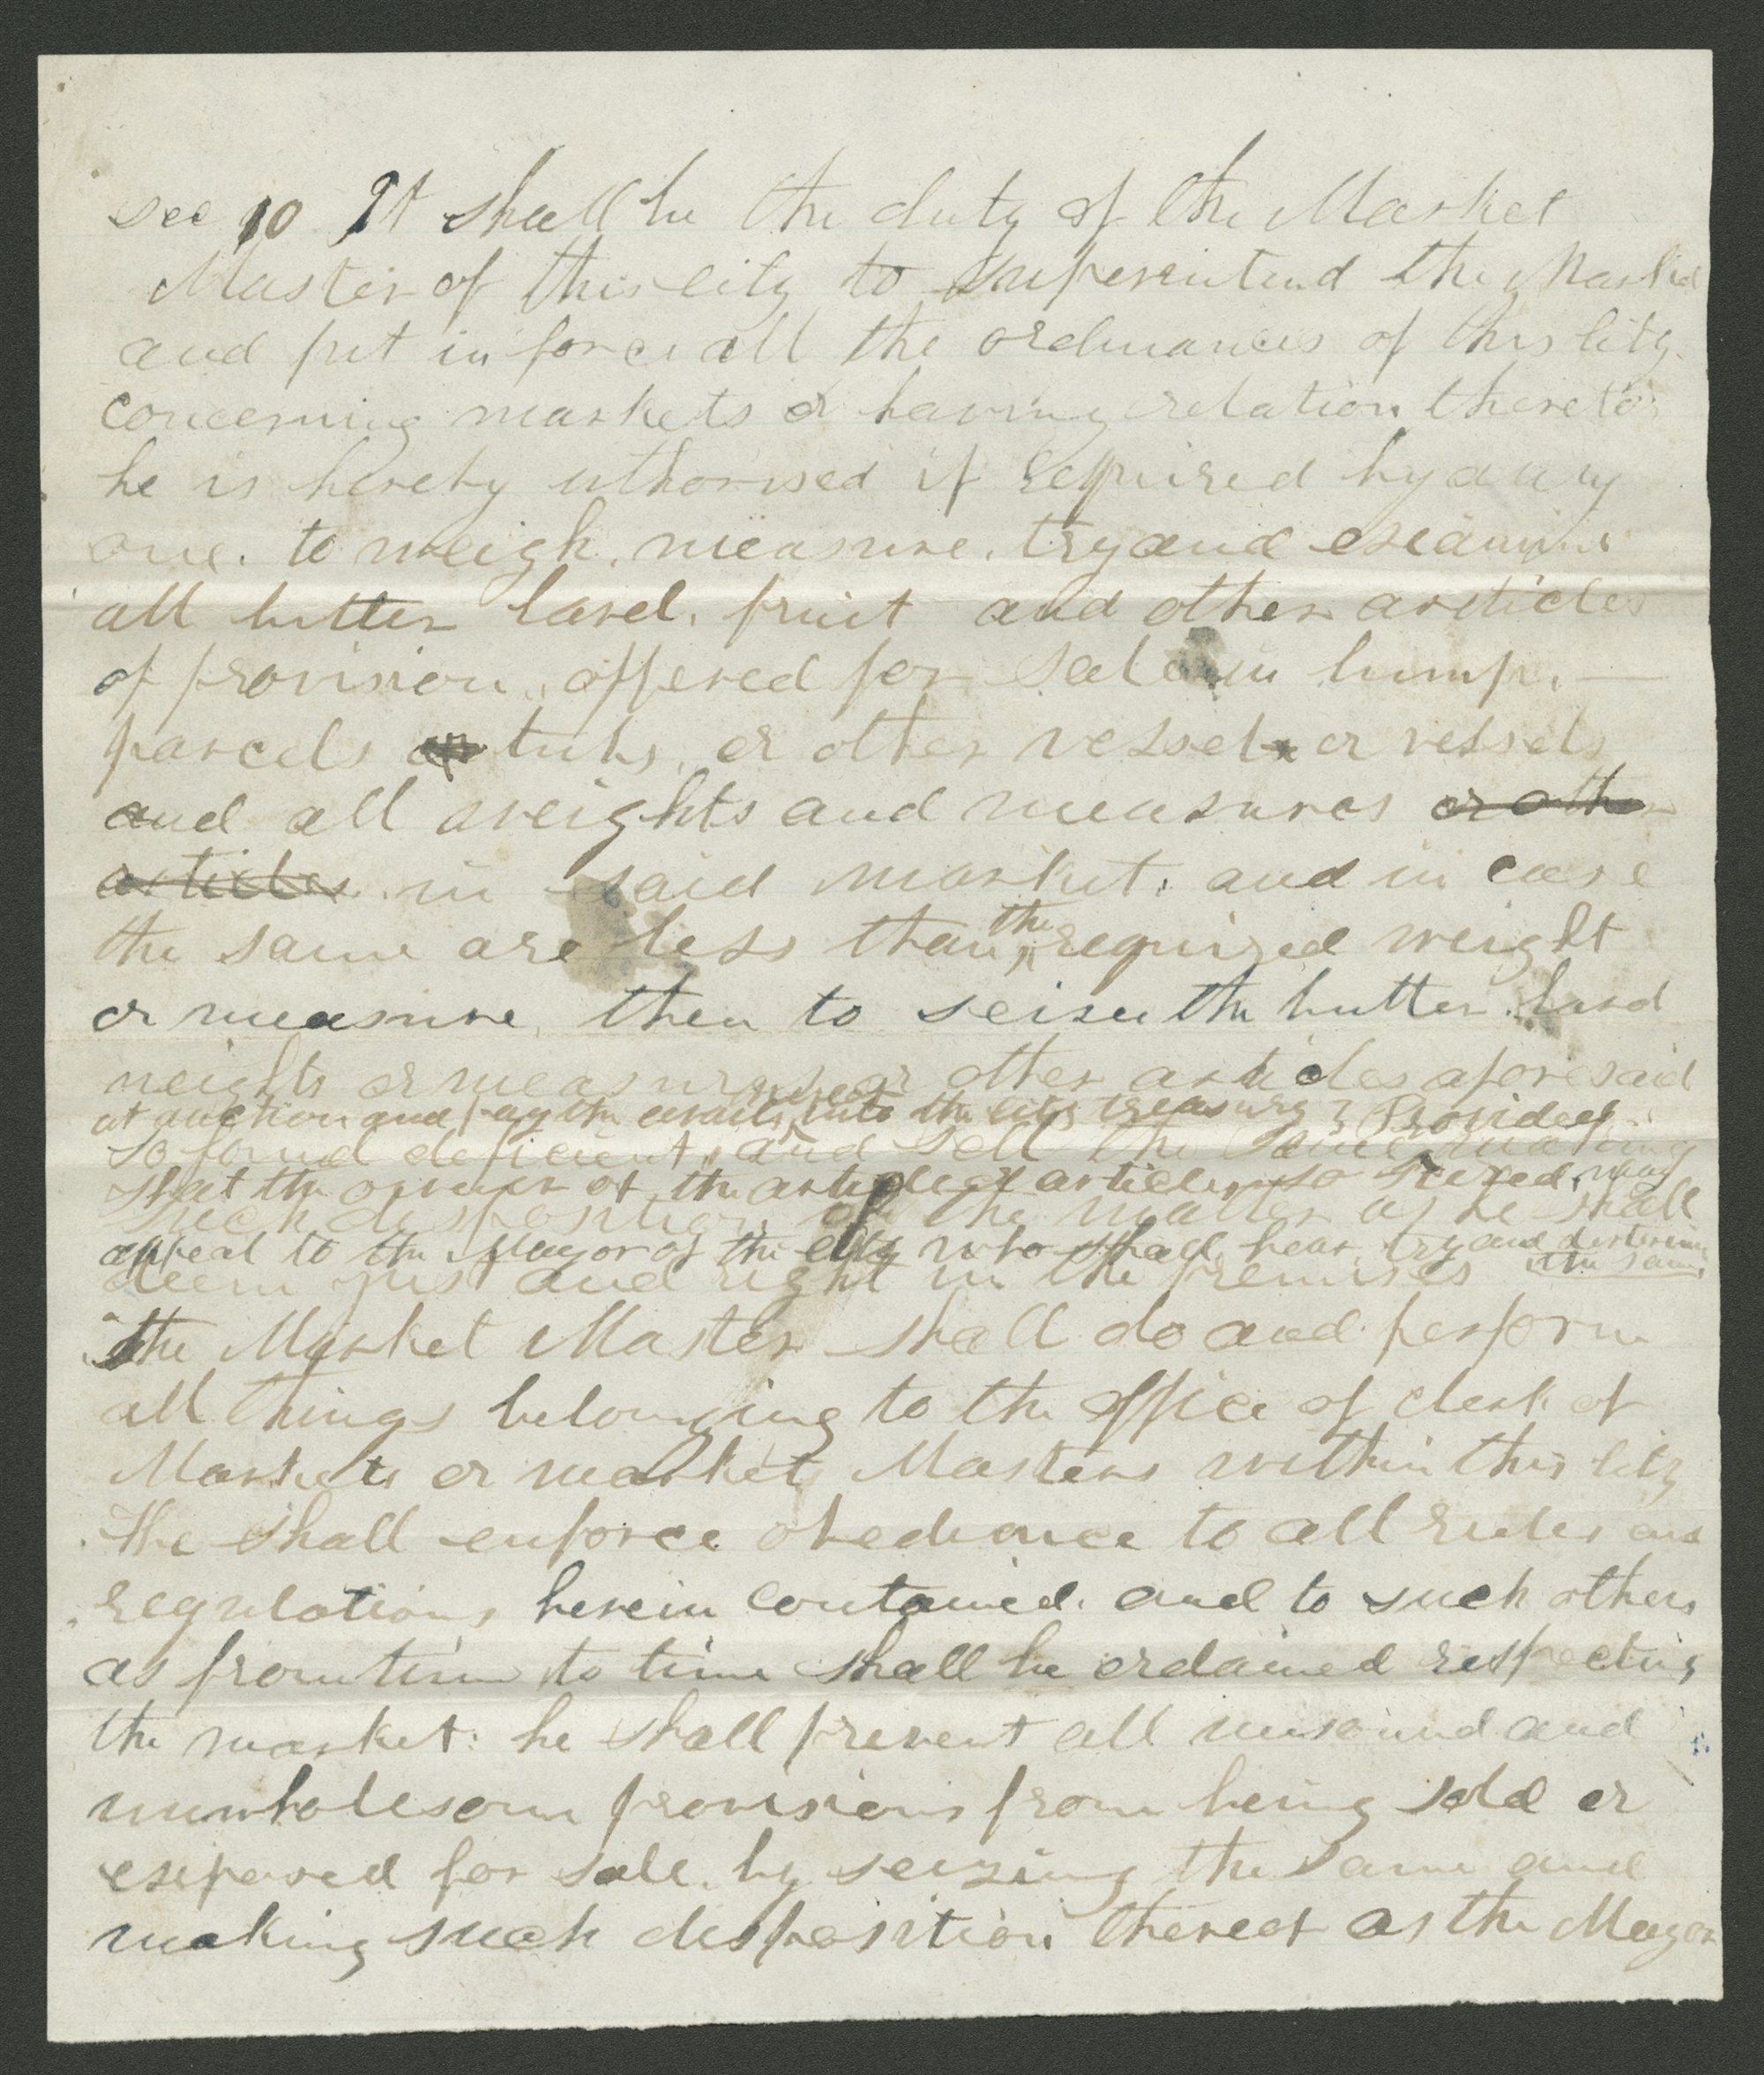 sec 10 It shall be the duty of the Market
Master of this city to superintend the Market
and put in force all the ordinances of this city
concerning markets or having relation thereto;
he is hereby uthorised if required by any
one. to weigh, measure, try and examine
all butter lard, fruit and other articles
of provision, offered for sale in lump, —
parcels or tubs, or other vessel or vessels
and all weights and measures or other
articles in said market, and in case
the same are less than the required weight
or measure, then to seize the butter, lard
weights or measures or other articles aforesaid
at auction and pay the avails into the city treasury; Provided
so found deficient, and sell the same making
that the owner of the article or articles, so seized, may
such desposition of the matter as he shall
appeal to the Mayor of the city who shall, hear, try and determine the same
deem just and right in the premises
the Market Master shall do and perform
all things belonging to the office of clerk of
Markets or market Masters within this city
He shall enforce obedience to all rules and
regulations herein contained, and to such others
as from time to time shall be ordained respecting
the market: he shall prevent all unsound and
unwholesom provisions from being sold or
exposed for sale, by seizing the same and
making such desposition thereof as the Mayor